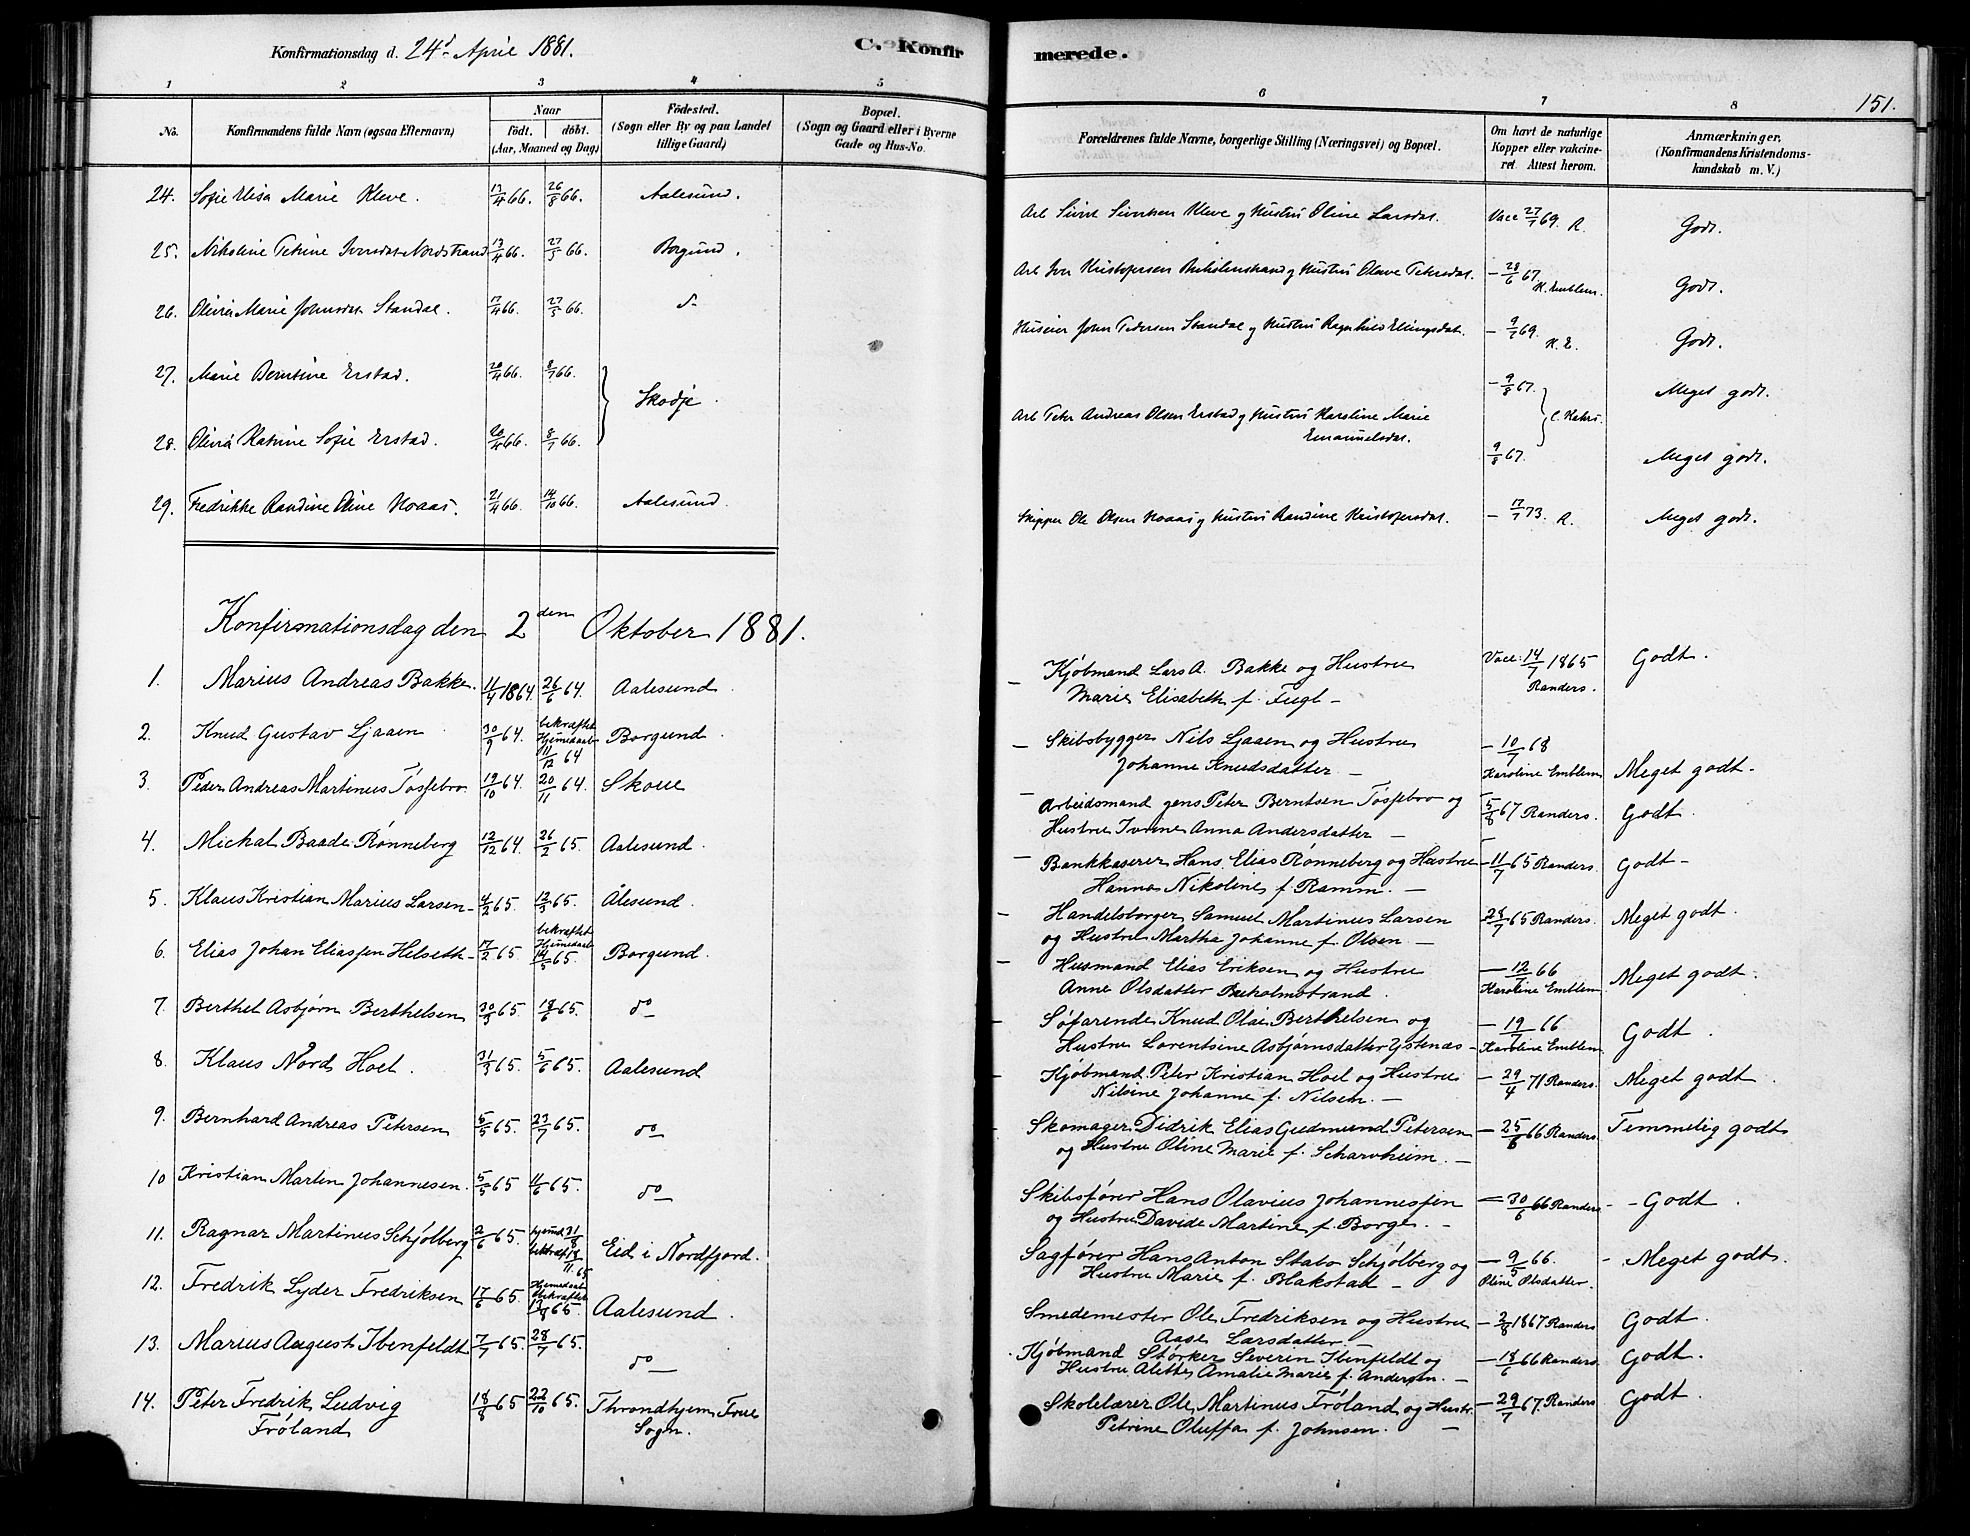 Konfirmationsdag d. 24de April 1881.
C. Konfir
merede.
151.
1
2
3
4
5
6
7
8
No.
Konfirmandens fulde Navn (ogsaa Efternavn)
Naar
født. døbt.
(Aar, Maaned og Dag)
Fødested.
(Sogn eller By og paa Landet
tillige Gaard)
Bopæl.
(Sogn og Gaard eller i Byerne
Gade og Hus-No.
Forældrenes fulde Navne, borgerlige Stilling (Næringsvei) og Bopæl.
Om havt de naturlige
Kopper eller vakcine-
ret Attest herom.
Anmærkninger,
(Konfirmandens Kristendoms-
kundskab m. V.)
24. Sofie Marie Kleve. 13/4 66. 26/8 66. Aalesund. Arb Sivert Sivertsen Kleve og Hustru Oline Larsdat. Vacc 27/7 69. R. Godt.
25. Nikoline Petrine Iversdat Nordstrand 13/4 66. 27/5 66. Borgund. Arb Iver Kristofersen og Hustru Olave Petersdat. – 28/6 67. K. Emblem. Godt.
26. Olivia Marie Johnsdat Standal. 17/4 66. 27/5 66. d- Huseier John Pedersen Standal og Hustru Ragnhild Ellingsdat. – 9/7 69. K. E. Godt.
27. Marie Berntine Erstad. 20/4 66. 8/7 66. – 9/8 67. Meget godt.
Skodje.
Arb Peter Andreas Olsen Erstad og Hustru Karoline Marie
Emanuelsdat.
28. Olivia Katrine Sofie Erstad. 20/4 66. 8/7 66. 9/8 67. Meget godt.
29. Fredrikke Randine Oline Hoaas. 21/4 66. 14/10 66. Aalesund. Skipper Ole Olsen Hoaas og Hustru Randine Kristofersdat. – 17/7 73. R. Meget godt.
Konfirmationsdag den 2den Oktober 1881.
1. Marius Andreas Bakke. 11/4 1864. 26/6 64. Aalesund. – Kjøbmand Lars A. Bakke og Hustru
Marie Elisabeth f. Fugl – Vacc: 14/7 1865
Randers. Godt.
2. Knud Gustav Ljaaen 30/9 64. bekræftet
Hjemmedaab
11/12 64 Borgund. – Skibsbygger Nils Ljaaen og Hustru
Johanne Knudsdatter – – 10/7 68
Karoline Emblem Meget godt.
3. Peder Andreas Martinus Tøsfebro 19/10 64. 20/11 64. Skoue – Arbeidsmand Jens Peter Berntsen Tøsfebro og
Hustru Ivrine Anna Andersdatter – 5/8 67 Randers. Godt.
4. Michal Baade Rønneberg 12/12 64. 26/2 65. Aalesund. – Bankkaserer Hans Elias Rønneberg og Hustru
Hanna Nikoline f. Ramm. – – 11/7 65 Randers. Godt –
5. Klaus Kristian Marius Larsen – 4/2 65. 12/3 65. Ålesund. – Handelsborger Samuel Martinus Larsen
og Hustru Martha Johanne f. Olsen – 28/7 65 Randers. Meget godt.
6. Elias Johan Eliassen Helseth – 17/2 65. bekræftet
Hjemmedaab
14/5 65. Borgund. – Husmand Elias Eriksen og Hustru
Anne Olsdatter Buholmstrand. – 12/7 66
Karoline Emblem. Meget godt.
7. Berthel Asbjørn Berthelsen 30/3 65. 18/6 65. do – Søfarende Knud Olai Berthelsen og
Hustru Lorentsine Asbjørnsdatter Ystenæs – – 19/7 66
Karoline Emblem. Godt.
8. Klaus Nord Hoel. 31/3 65. 5/6 65. Aalesund – Kjøbmand Peter Kristian Hoel og Hustru
Nilsine Johanne f. Nilsen. – – 29/4 71 Randers. Meget godt.
9. Bernhard Andreas Petersen 5/5 65. 23/7 65. do Skomager Didrik Elias Gudmund Petersen
og Hustru Oline Marie f. Scharvheim. – – 25/6 66 Randers. Temmelig godt
10 Kristian Martin Johannesen. 5/5 65 11/6 65. do Skibsfører Hans Olavius Johannessen
og Hustru Davida Martine f. Borge. – – 30/6 66 Randers – Godt.
11. Ragnar Martinus Schjølberg 2/6 65. hjemd. 31/8
bekræf. 13/11 65 Eid i Nordfjord. Sagfører Hans Anton Stabo Schjølberg og
Hustru Marie f. Blakstad – – 9/5 66.
Oline Olsdatter. – Meget godt.
12. Fredrik Lyder Fredriksen 17/6 65. Hjemmedaab
bekræftet
13/8 65. Aalesund. Smedemester Ole Fredriksen og Hustru
Aase Larsdatter – 2/8 1867 Randers Godt.
13. Marius August Ibenfeldt 7/7 65. 28/7 65. do Kjøbmand Størker Severin Ibenfeldt og
Hustru Alette Amalie Marie f. Andersen. – – 18/6 66 Randers. Godt.
14. Peter Fredrik Ludvig
Frøland 18/8 65 22/10 65. Throndhjem Frue
Sogn. Skolelærer Ole Martinus Frøland og Hustr.
Petrine Oluffa f. Johnsen. – – 29/7 67. Randers Godt